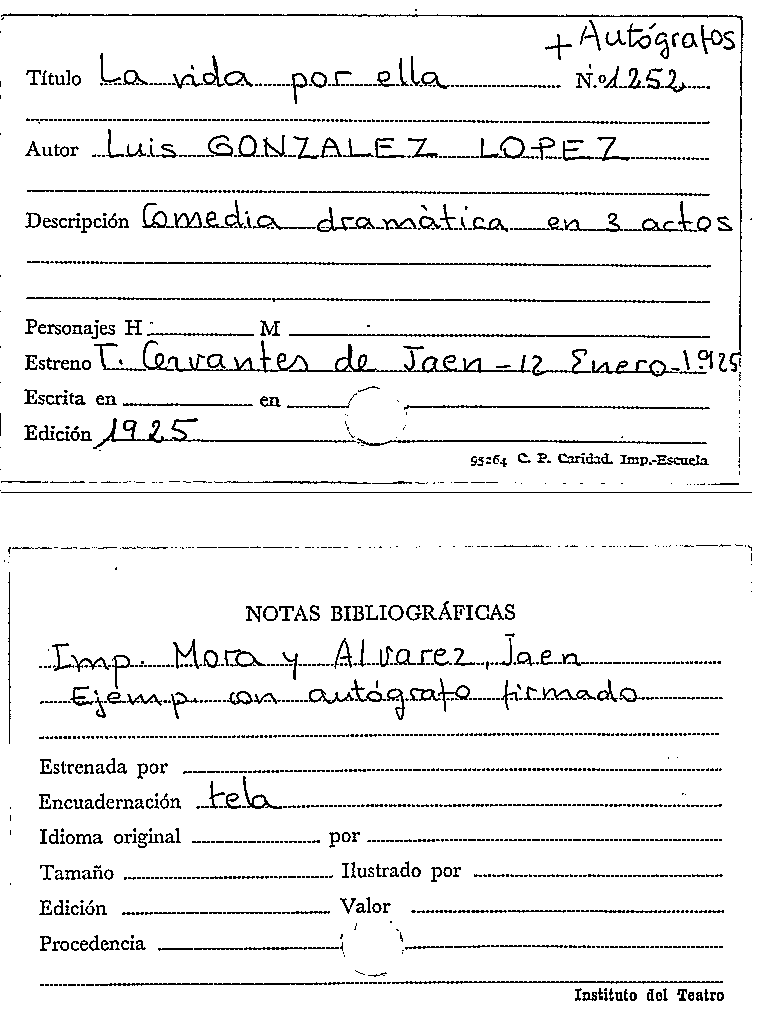 + Autógrafos
Título La vida por ella N.º 1252
Autor Luis GONZALEZ LOPEZ
Descripción Comedia dramàtica en 3 actos
Personajes H M
Estreno T. Cervantes de Jaen - 12 Enero - 1.925
Escrita en en
Edición 1925
95264 C. P. Caridad. Imp.-Escuela
NOTAS BIBLIOGRÁFICAS
Imp. Mora y Alvarez, Jaen
Ejemp. con autógrafo firmado
Estrenada por
Encuadernación tela
Idioma original por
Tamaño Ilustrado por
Edición Valor
Procedencia
Instituto del Teatro